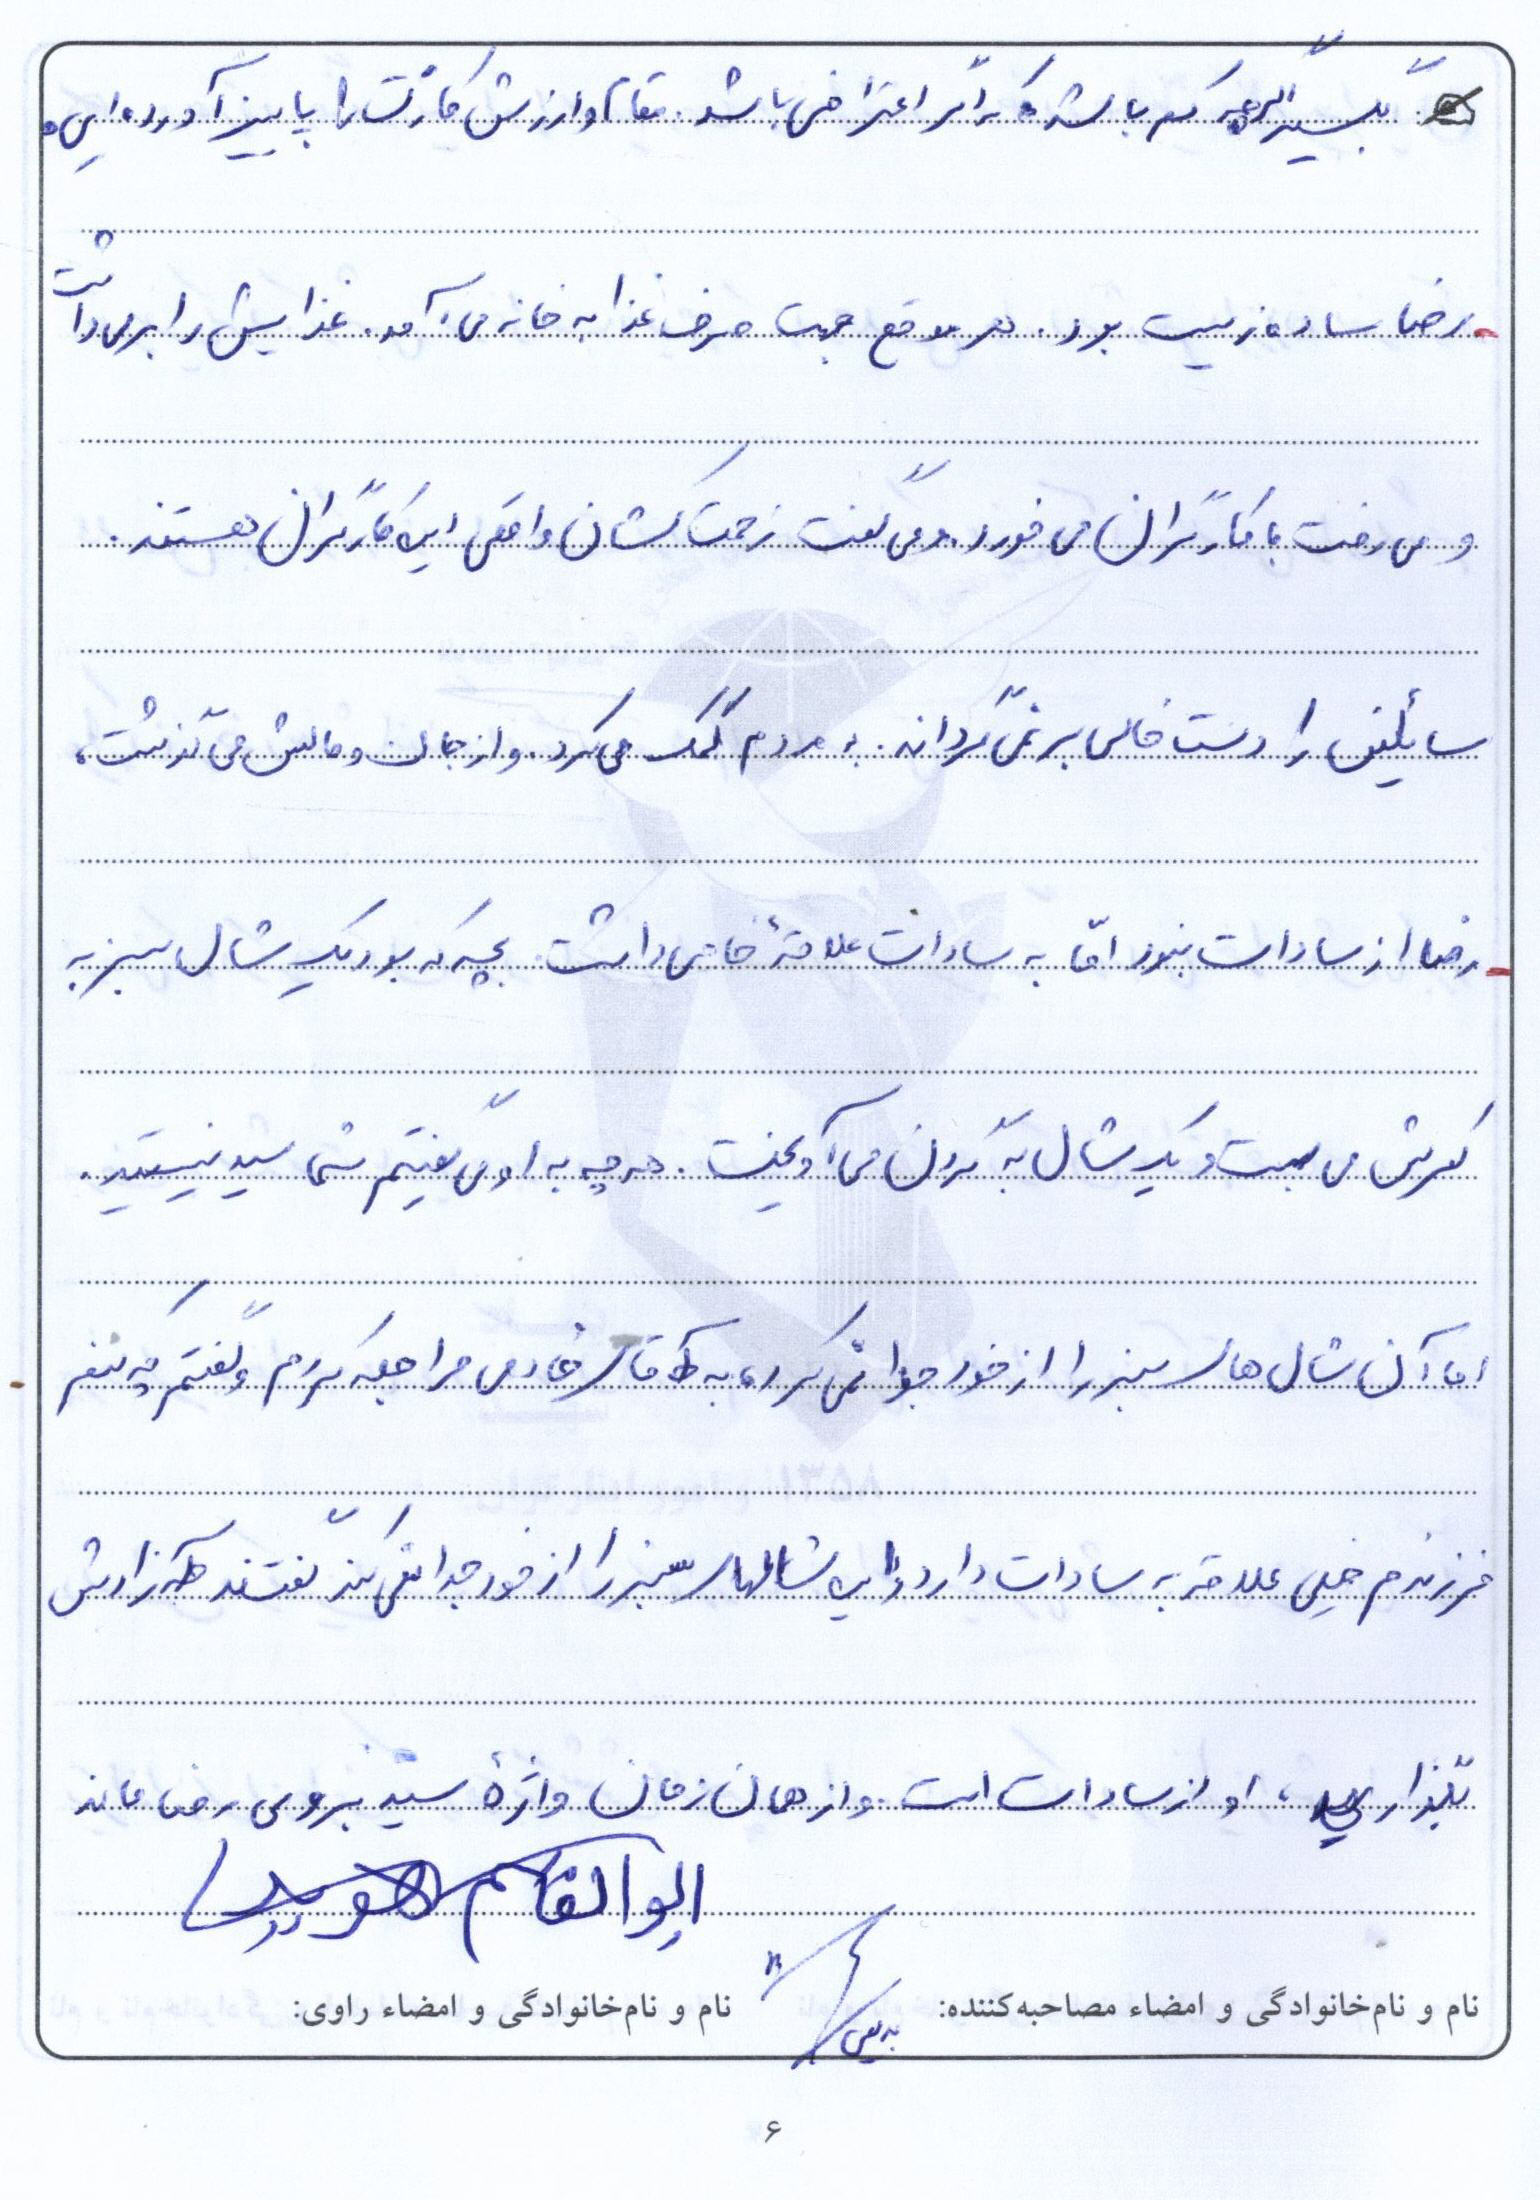 بگیر اگرچه کم باشد که اگر اعتراضی باشد. مقام و ارزش کارت را پایین آورده‌ای.
رضا ساده زیست بود. هر موقع جهت صرف غذا به خانه می‌آمد. غذایش را برمی‌داشت
و می رفت با کارگران می خورد. و می گفت زحمت کشان واقعی این کارگران هستند.
سائلین را دست خالی بر نمی گرداند. به مردم کمک می کرد. و از جان و مالش می گذشت.
رضا از سادات نبود امّا به سادات علاقهٔ خاصی داشت. بچه که بود یک شال سبز به
کمرش می بست و یک شال به گردن می آویخت. هر چه به او می گفتیم شما سید نیستید.
اما آن شال های سبز را از خود جدا نمی کرد. به آقای خادمی مراجعه کردم و گفتم که
فرزندم خیلی علاقه به سادات دارد و این شالهای سبز را از خود جدا نمی کند گفتند که آزادش
بگذارید، او از سادات است. و از همان زمان واژهٔ سیّد بر روی رضا ماند
ابوالقاسم
نام و نام‌خانوادگی و امضاء مصاحبه‌کننده: نام و نام‌خانوادگی و امضاء راوی:
۶